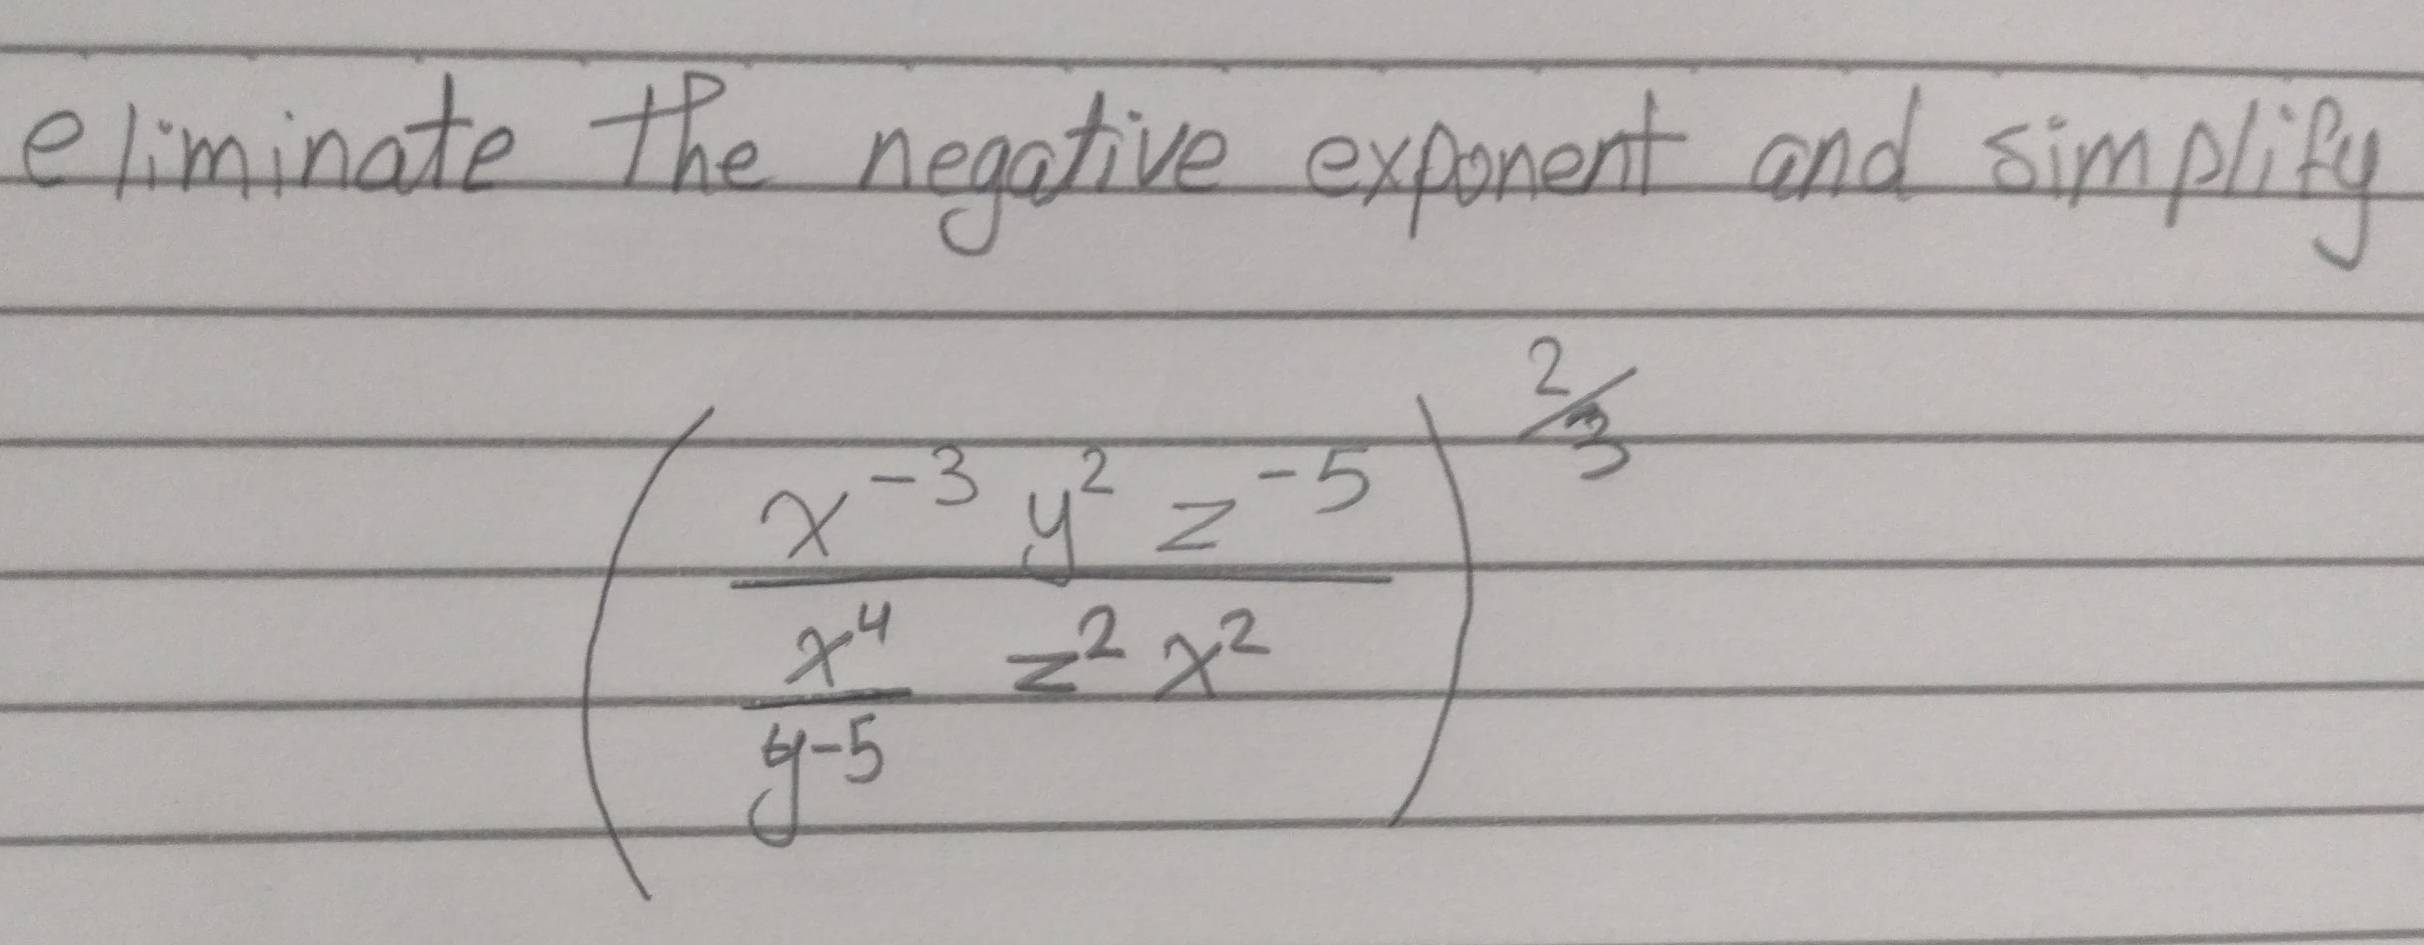 eliminate the negative exponent and simplify
(\frac{x^{-3} y^2 z^{-5}}{\frac{x^4}{y-5} z^2 x^2})^{2/3}